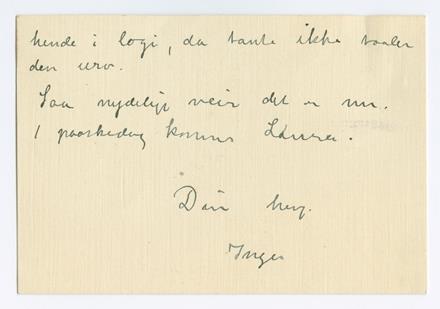 hende i logi, da tante ikke taaler
den uro.
Saa nydeligt veir det er nu.
1 paaskedag kommer Laura.
Din heng.
Inger